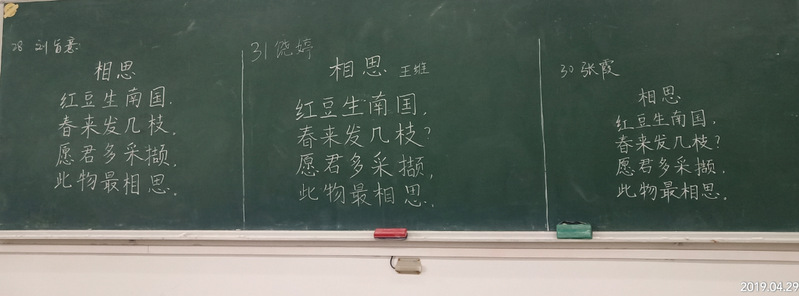 28 刘旨意
相思
红豆生南国,
春来发几枝,
愿君多采撷,
此物最相思.
31 饶婷
相思 王维
红豆生南国,
春来发几枝?
愿君多采撷,
此物最相思.
30 张霞
相思
红豆生南国,
春来发几枝?
愿君多采撷,
此物最相思.
2019.04.29